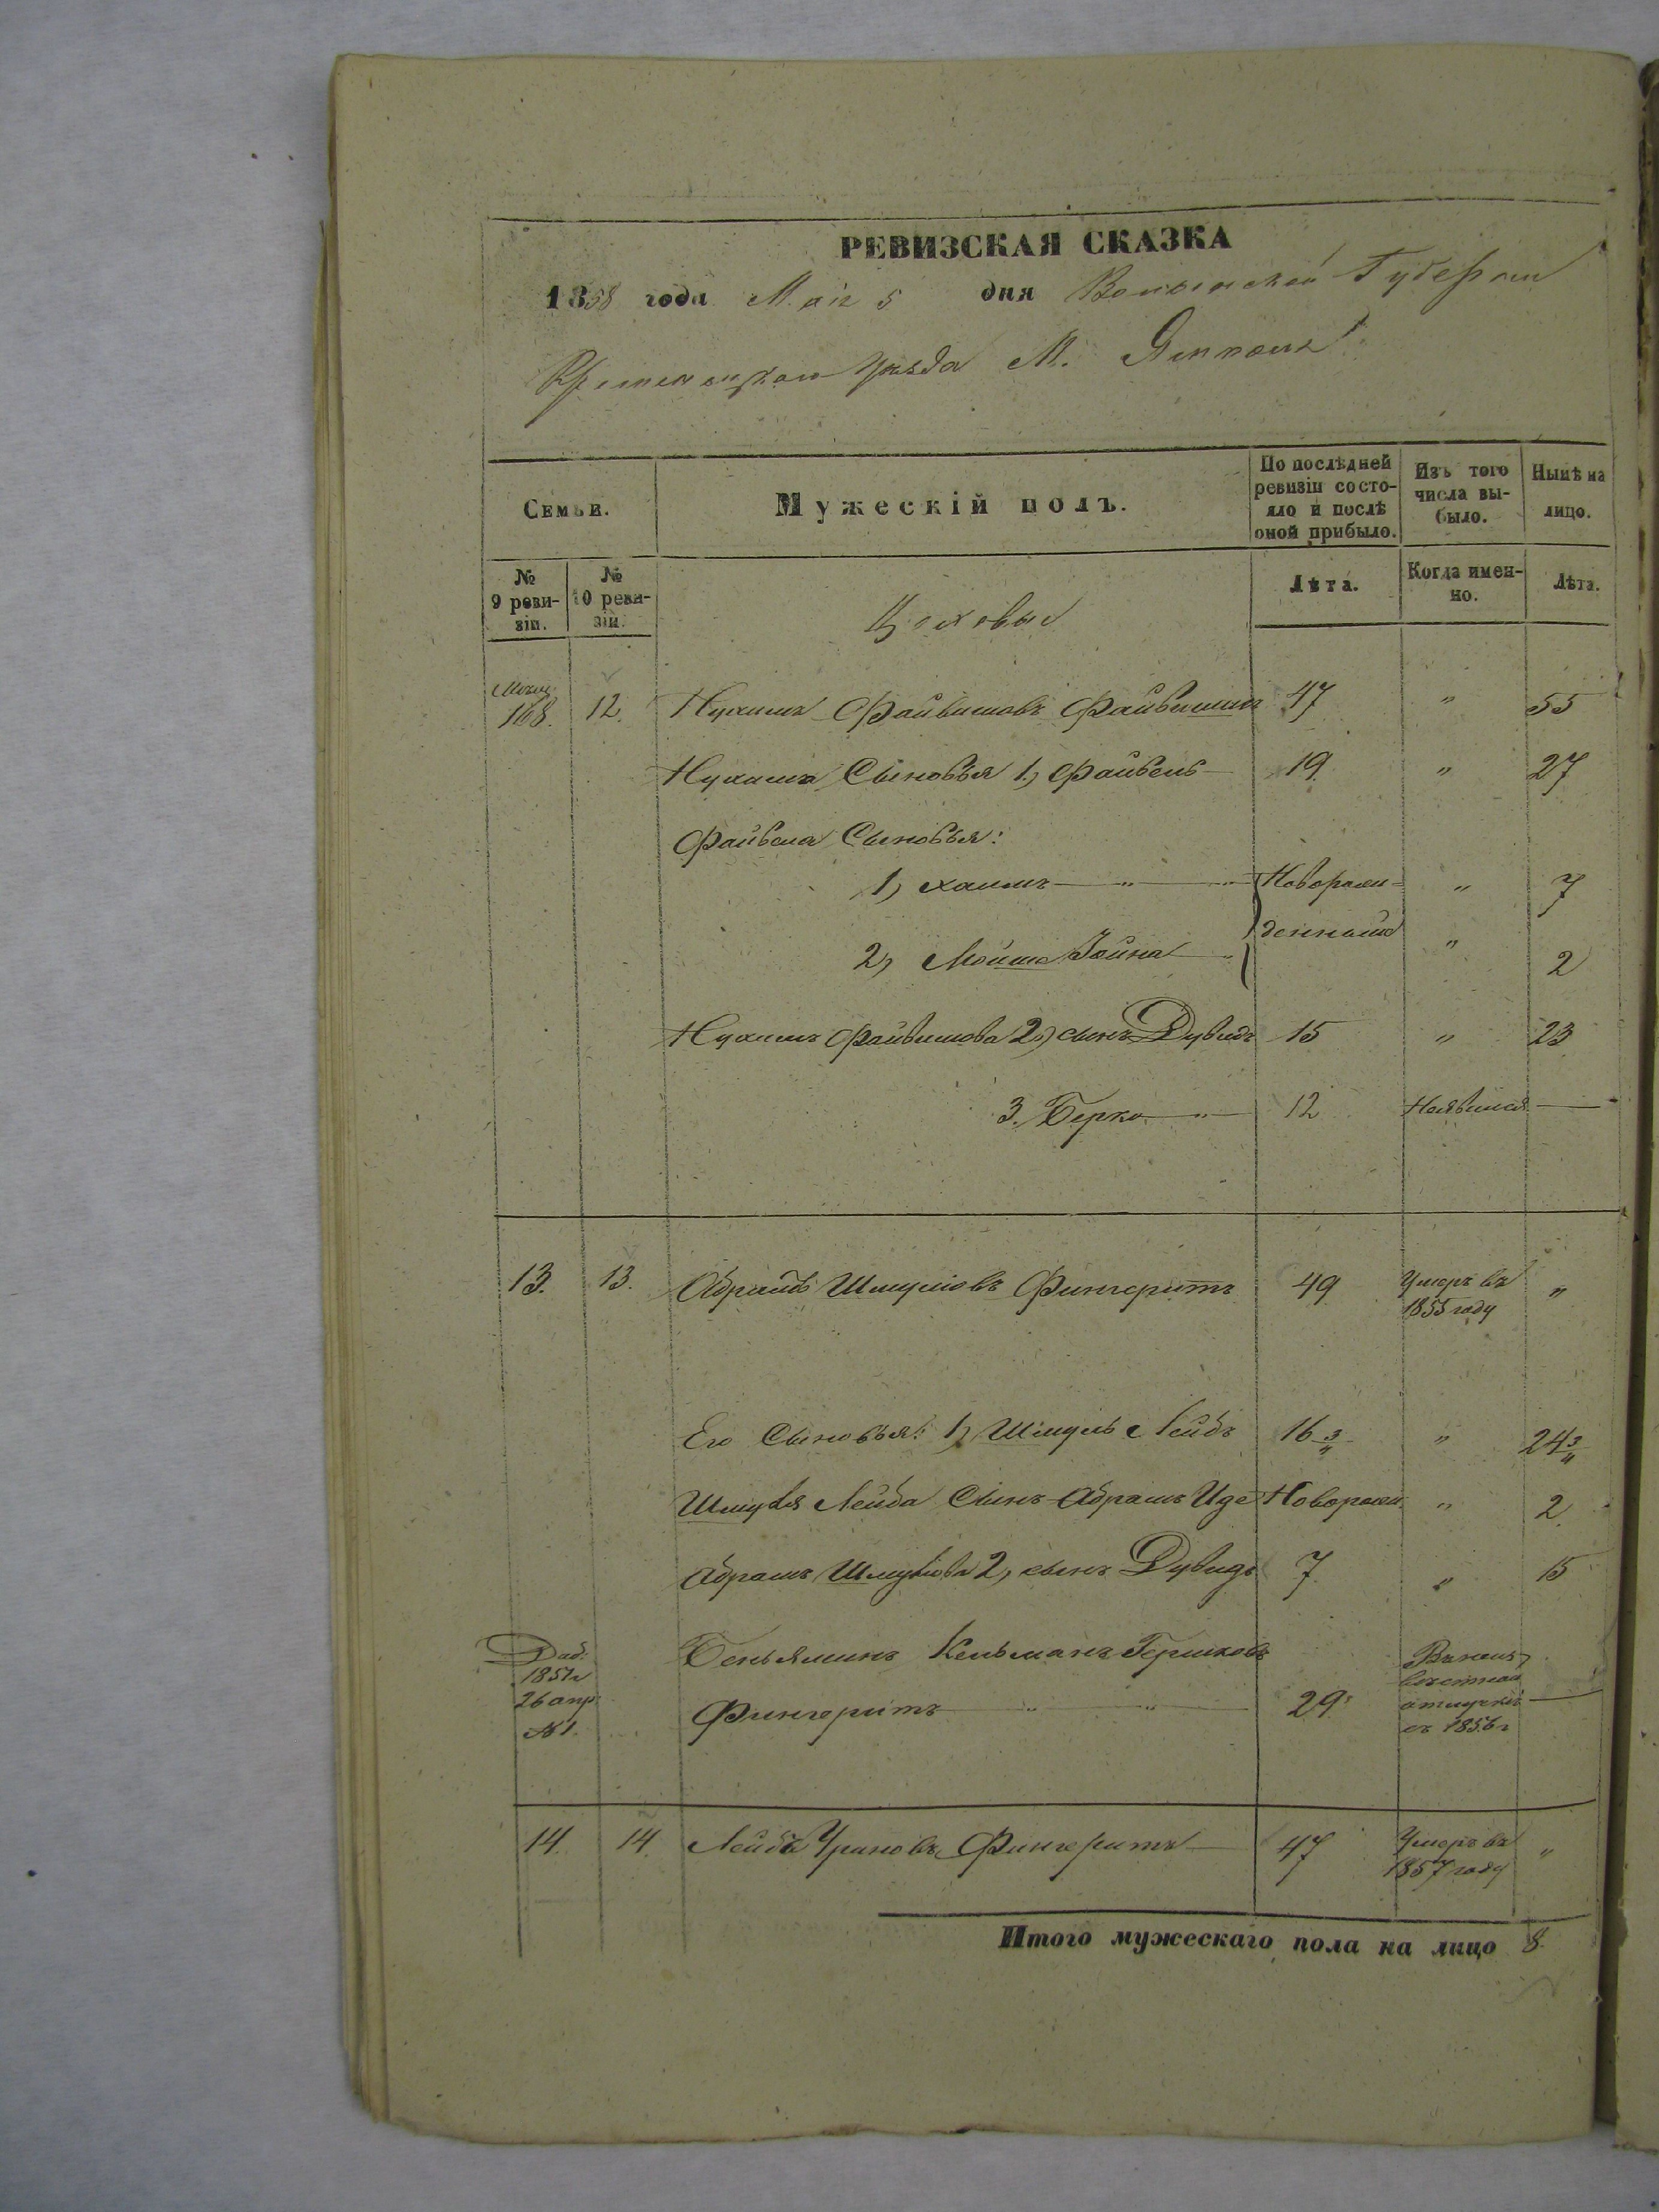 РЕВИЗСКАЯ СКАЗКА
1858 года Мая 5 дня Волынской Губернии
Кременецкаго Уѣзда М. Ямполя
Семьи. Мужескій полъ. По послѣдней ревизіи состояло и послѣ оной прибыло. Изъ того числа выбыло. Нынѣ на лицо.
№ 9 ревизіи. № 10 ревизіи. Лѣта. Когда именно. Лѣта.
Цеховые
168. 12. Нухимъ Файвишовъ Файвишинъ 47 " 55
Нухима Сыновья 1, Файвель 19 " 27
Файвеля Сыновья:
1, Хаимъ " " Новорож= " 7
2, Мойше Зойна " денные " 2
Нухимъ Файвишова 2, сынъ Дувидъ 15 " 23
3. Берко " 12 Неявился
13. 13. Абрамъ Шмулiовъ Фингеритъ 49 Умеръ въ 1855 году "
Его Сыновья: 1, Шмуль Лейбъ 16 3/" " 24 3/"
Шмуля Лейба Сынъ Абрамъ Иде Новорож. " 2
Абрамъ Шмулiова 2, сынъ Дувидъ 7 " 15
Доб: 1851г 26 апр №1. Беньяминъ Кельманъ Гершковъ
Фингеритъ " " 29 Въ неизвѣстной отлучкѣ съ 1856г
14. 14. Лейба Уриновъ Фингеритъ 47 Умеръ въ 1857 году "
Итого мужескаго пола на лицо 8.